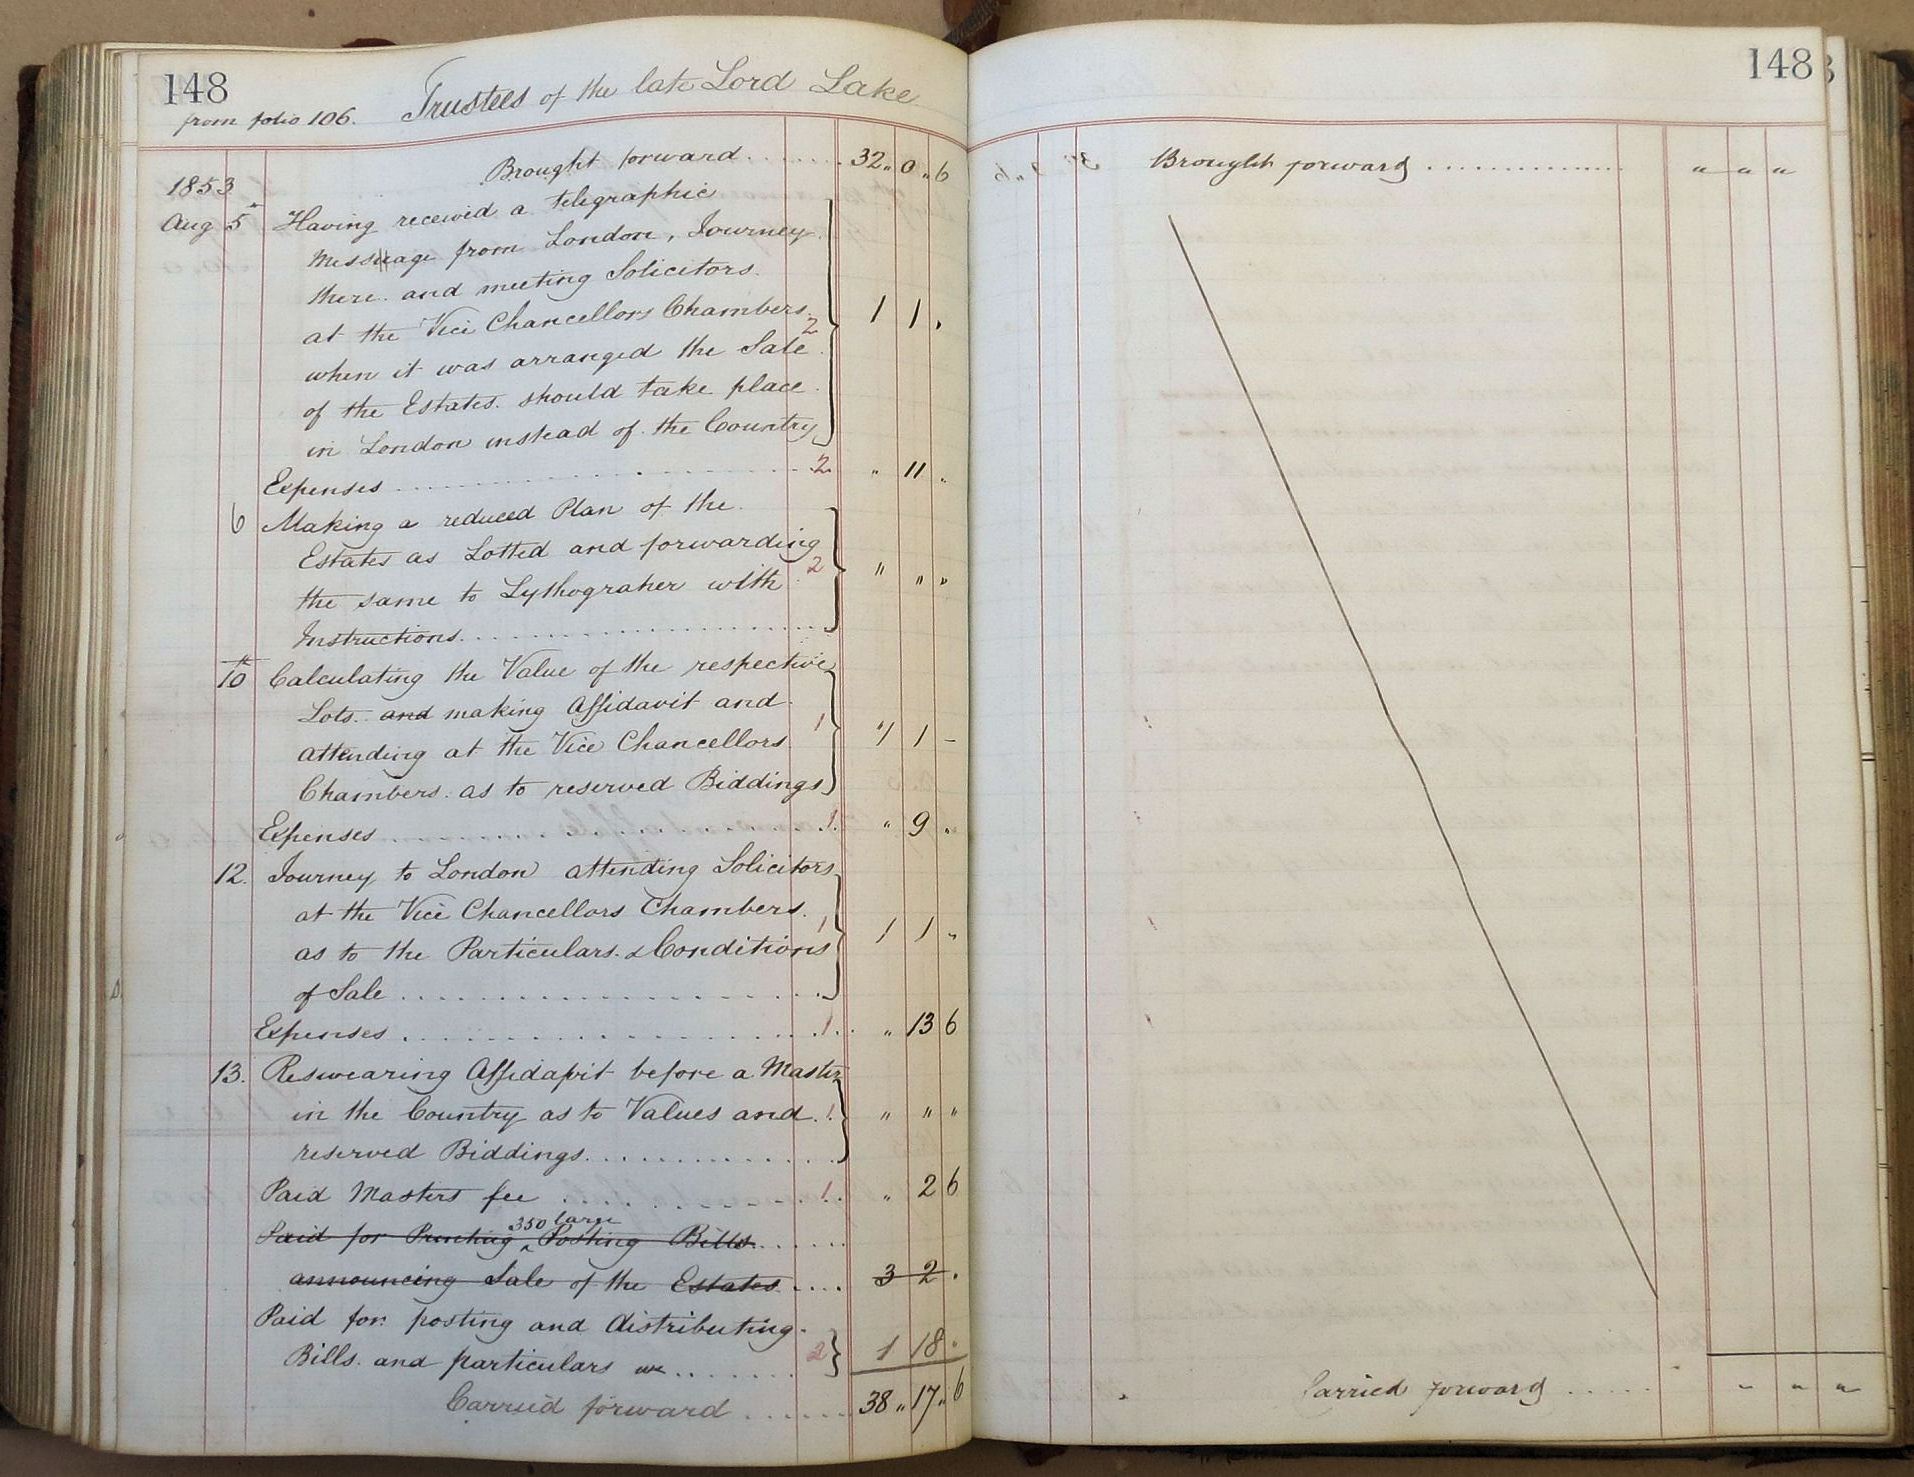 148
from folio 106. Trustees of the late Lord Lake
Brought forward ........ 32 „ 0 „ 6
1853
Aug 5 Having received a telegraphic
Message from London, Journey
there and meeting Solicitors
at the Vice Chancellors Chambers 2 1 1 „
when it was arranged the Sale
of the Estates should take place
in London instead of the Country
Expenses ........ 2 „ 11 „
6 Making a reduced Plan of the
Estates as Lotted and forwarding
the same to Lythograher with 2 „ „ „
Instructions ........
10th Calculating the Value of the respective
Lots and making Affidavit and
attending at the Vice Chancellors 1 1 1 –
Chambers as to reserved Biddings
Expenses ........ 1 „ 9 „
12. Journey to London attending Solicitors
at the Vice Chancellors Chambers
as to the Particulars & Conditions 1 1 1 „
of Sale ........
Expenses ........ 1 „ 13 6
13. Reswearing Affidavit before a Master
in the Country as to Values and 1 „ „ „
reserved Biddings ........
Paid Masters fee ........ 1 „ 2 6
Paid for Printing 350 large Posting Bills ......
announcing Sale of the Estates .... 3 2 .
Paid for posting and distributing
Bills and particulars ........ 2 1 18 „
Carried forward ...... 38 „ 17 „ 6
148
Brought forward .............. „ „ „
Carried forward ...... „ „ „